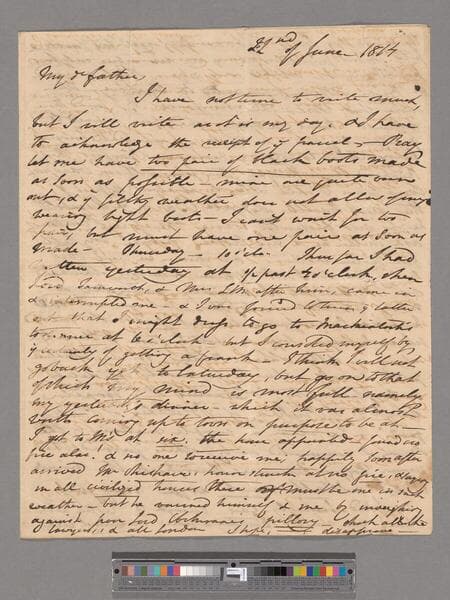 22nd of June 1814
My dr father
I have not time to write much,
but I will write as it is my day, & I have
to acknowledge the receipt of yr parcel - Pray
let me have two pair of black boots made
as soon as possible - mine are quite worn
out, & ye filthy weather does not allow of my
wearing light boots - I can't wait for two
pair, but must have one pair as soon as
made - Thursday - 10 o'clo- Thus far I had
yesterday at 1/2 past 4 o'clock, when
Lord & Mrs after him, came in
& interrupted me - & I was forced to the latter
out that I might dress to go to Mackintosh's
to dinner at 6 o'clock but I consoled myself by
ye of getting a frank - I think I will not
go back to Saturday, but go on to that
of which my mind is most full namely
my yesterday's dinner - which it was almost
worth coming up to town on purpose to be at -
I got to M's at six the hour appointed - found no
fire alas. & no one to receive me; happily soon after
arrived Mr horror struck at no fire, & saying
in all civilized houses there must be one in such
weather - but he warmed himself & me by inveighing
against poor Lord Cochrane's pillory - shock all the
lawyers, & all London I hope, disapprove -